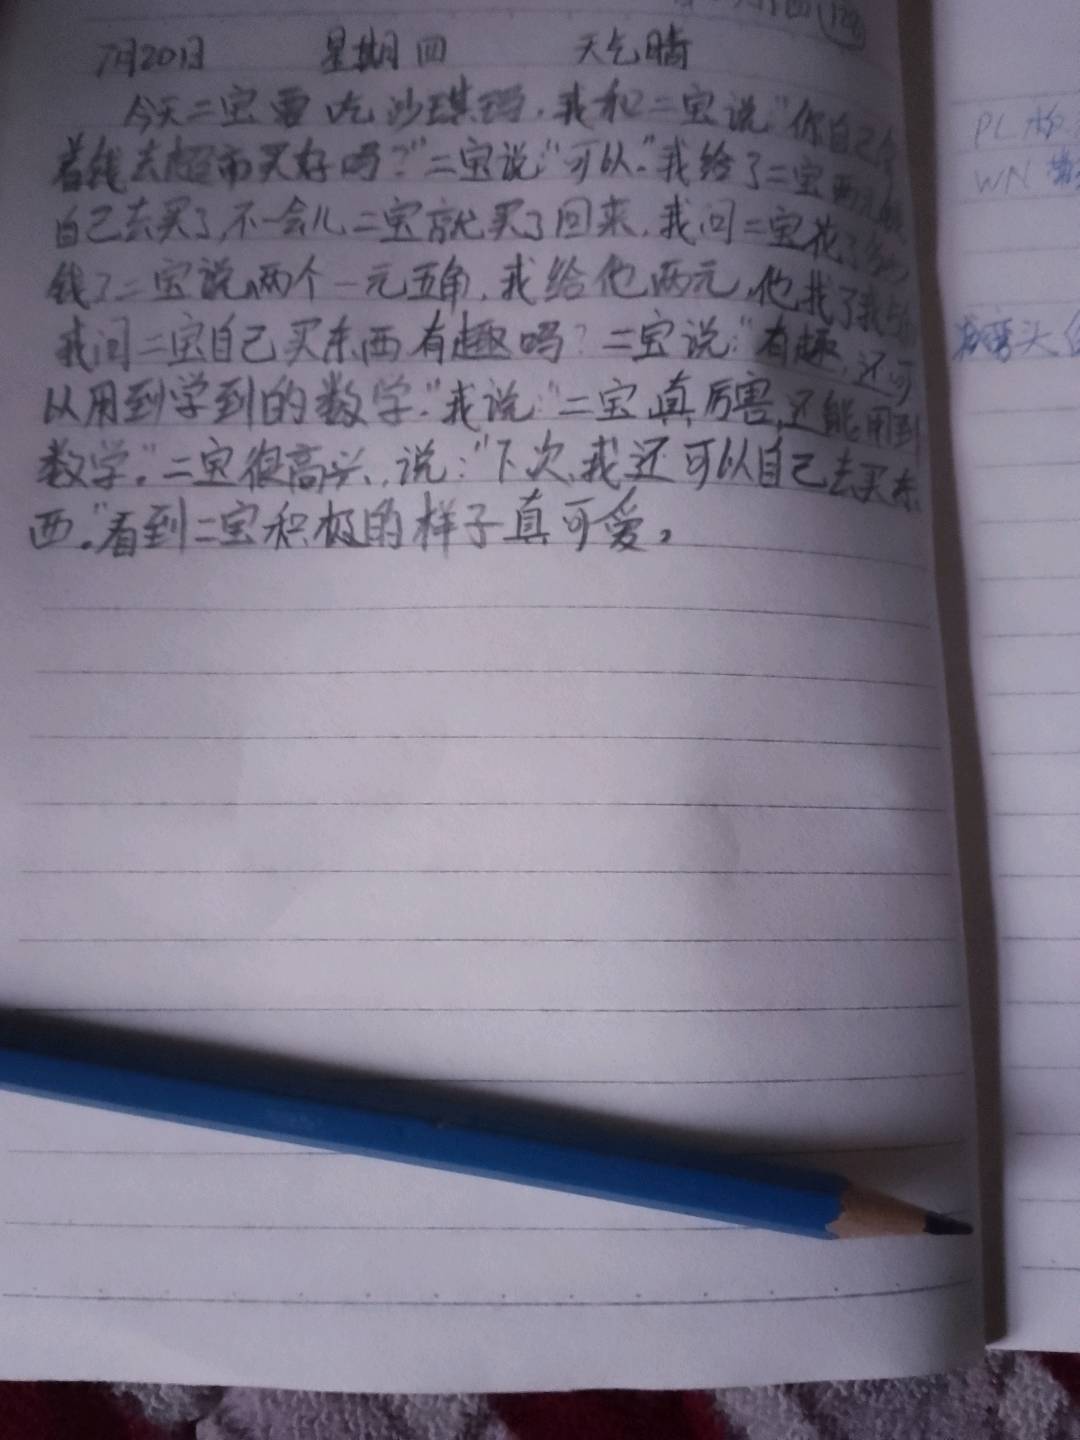 7月20日 星期四 天气晴
今天二宝要吃沙琪玛,我和二宝说"你自己拿
着钱去超市买好吗?"二宝说:"可以."我给了二宝两元
自己去买了,不一会儿二宝就买了回来,我问二宝花了多少
钱了二宝说,两个一元五角,我给他两元,他找了我
我问二宝自己买东西有趣吗?二宝说:"有趣,还可
以用到学到的数学."我说:"二宝真厉害,还能用到
数学."二宝很高兴,说:"下次,我还可以自己去买东
西。"看到二宝积极的样子真可爱。
PL
WN
弯头